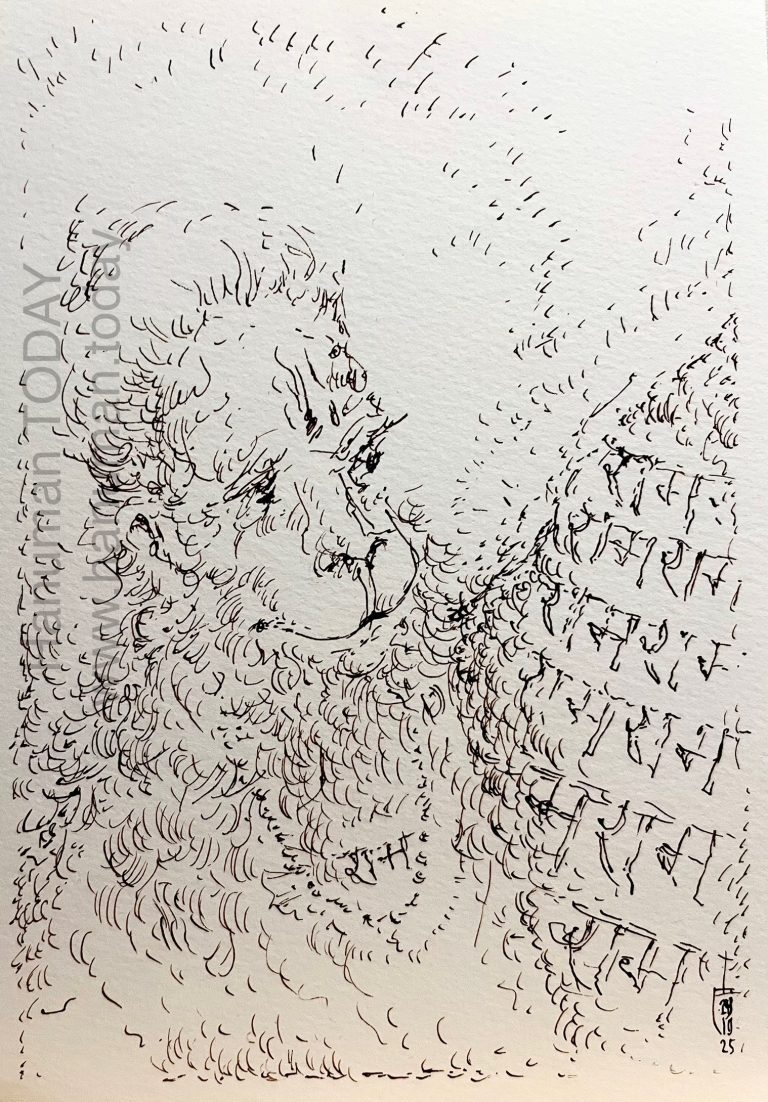 Hanuman TODAY
www.hanuman.today
राम
राम राम
राम राम
राम राम
राम
राम
राम
10
25